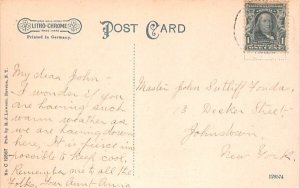 LITHO-CHROME
Printed in Germany.
POST CARD
My dear John-
I wonder if you
are having such
warm weather as
we are having down
here. It is fierce im
possible to keep cool.
Remember me to all the
folks. Your Aunt Anna
Master John Sutliff Fonda,
3 Decker Street
Johnstown
New York.